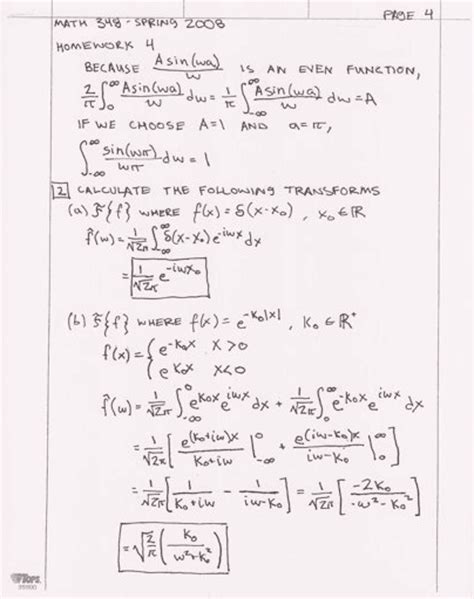 MATH 348 - SPRING 2008 PAGE 4
HOMEWORK 4
BECAUSE A sin(wa)/w IS AN EVEN FUNCTION,
2/π ∫_0^∞ A sin(wa)/w dw = 1/π ∫_{-∞}^∞ A sin(wa)/w dw = A
IF WE CHOOSE A=1 AND a=π,
∫_{-∞}^∞ sin(wπ)/wπ dw = 1
2 CALCULATE THE FOLLOWING TRANSFORMS
(a) F{f} WHERE f(x) = δ(x-x₀), x₀ ∈ ℝ
f̂(w) = 1/√2π ∫_{-∞}^∞ δ(x-x₀) e^{-iwx} dx
= 1/√2π e^{-iwx₀}
(b) F{f} WHERE f(x) = e^{-k₀|x|}, k₀ ∈ ℝ⁺
f(x) = { e^{-k₀x} x>0
e^{k₀x} x<0
f̂(w) = 1/√2π ∫_{-∞}^0 e^{k₀x} e^{iwx} dx + 1/√2π ∫_0^∞ e^{-k₀x} e^{iwx} dx
= 1/√2π [ e^{(k₀+iw)x}/(k₀+iw) |_{-∞}^0 + e^{(iw-k₀)x}/(iw-k₀) |_0^∞ ]
= 1/√2π [ 1/(k₀+iw) - 1/(iw-k₀) ] = 1/√2π [ -2k₀/(-w²-k₀²) ]
= √(2/π) ( k₀/(w²+k₀²) )
TOPS